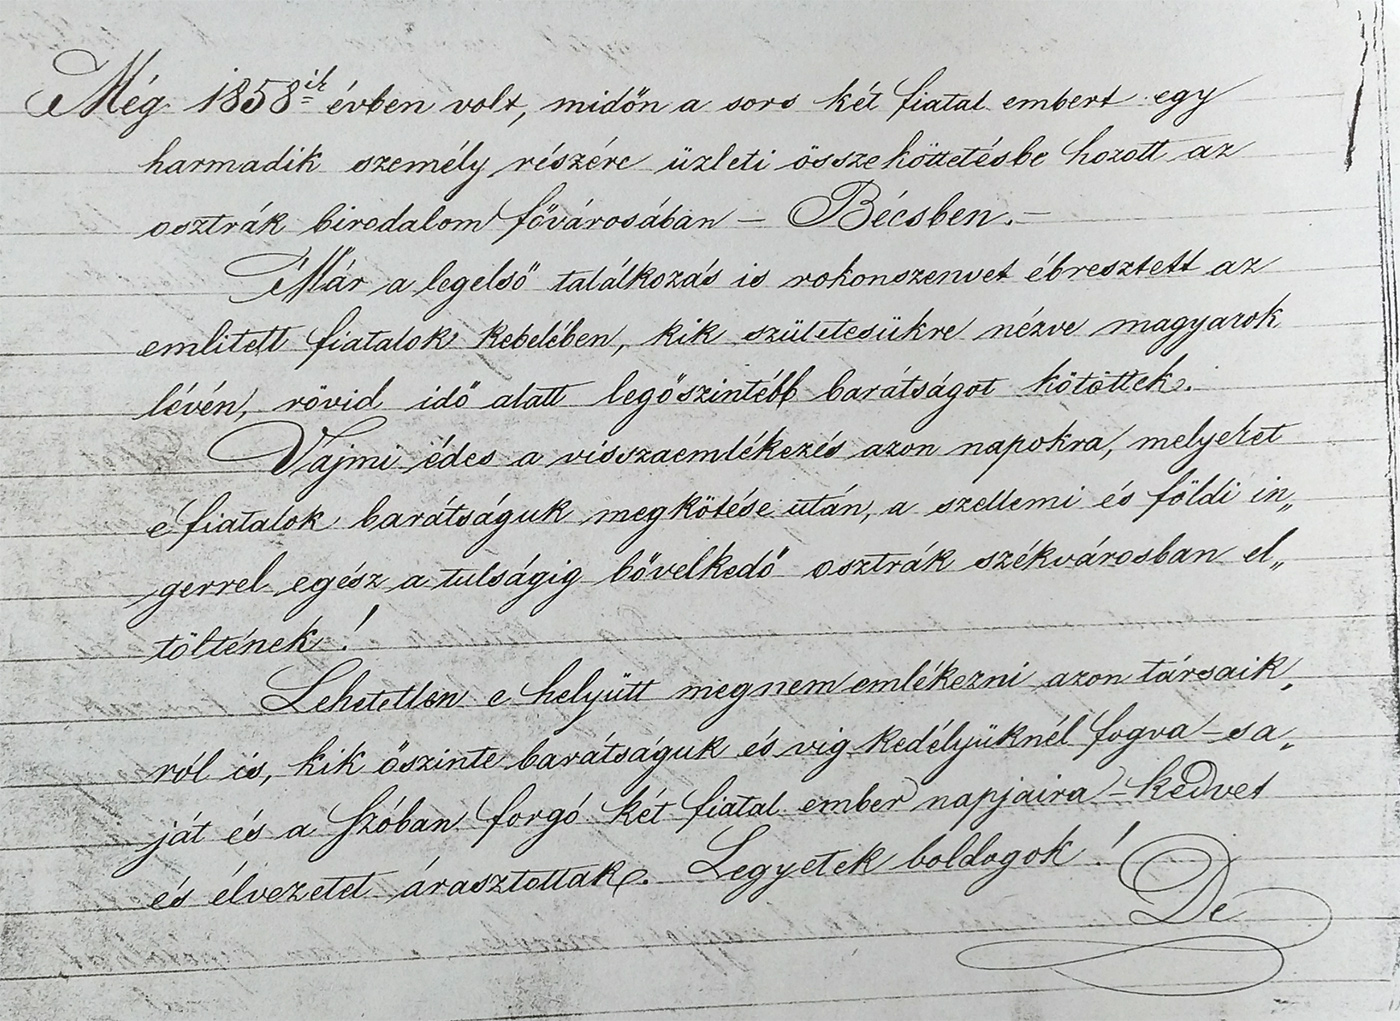 Még 1858ik évben volt, midőn a sors két fiatal embert egy
harmadik személy részére üzleti összeköttetésbe hozott az
osztrák birodalom fővárosában – Bécsben. –
Már a legelső találkozás is rokonszenvet ébresztett az
emlitett fiatalok kebelében, kik születesükre nézve magyarok
lévén, rövid idő alatt legőszintébb barátságot kötöttek.
Vajmi édes a visszaemlékezés azon napokra, melyeket
e fiatalok barátságuk megkötése után, a szellemi és földi in„
gerrel egész a tulságig bővelkedő osztrák székvárosban el„
töltének!
Lehetetlen e helyütt meg nem emlékezni azon társaik„
ról is, kik őszinte barátságuk és vig kedélyüknél fogva – sa„
ját és a szóban forgó két fiatal ember napjaira – kedvet
és élvezetet árasztottak. Legyetek boldogok!
De